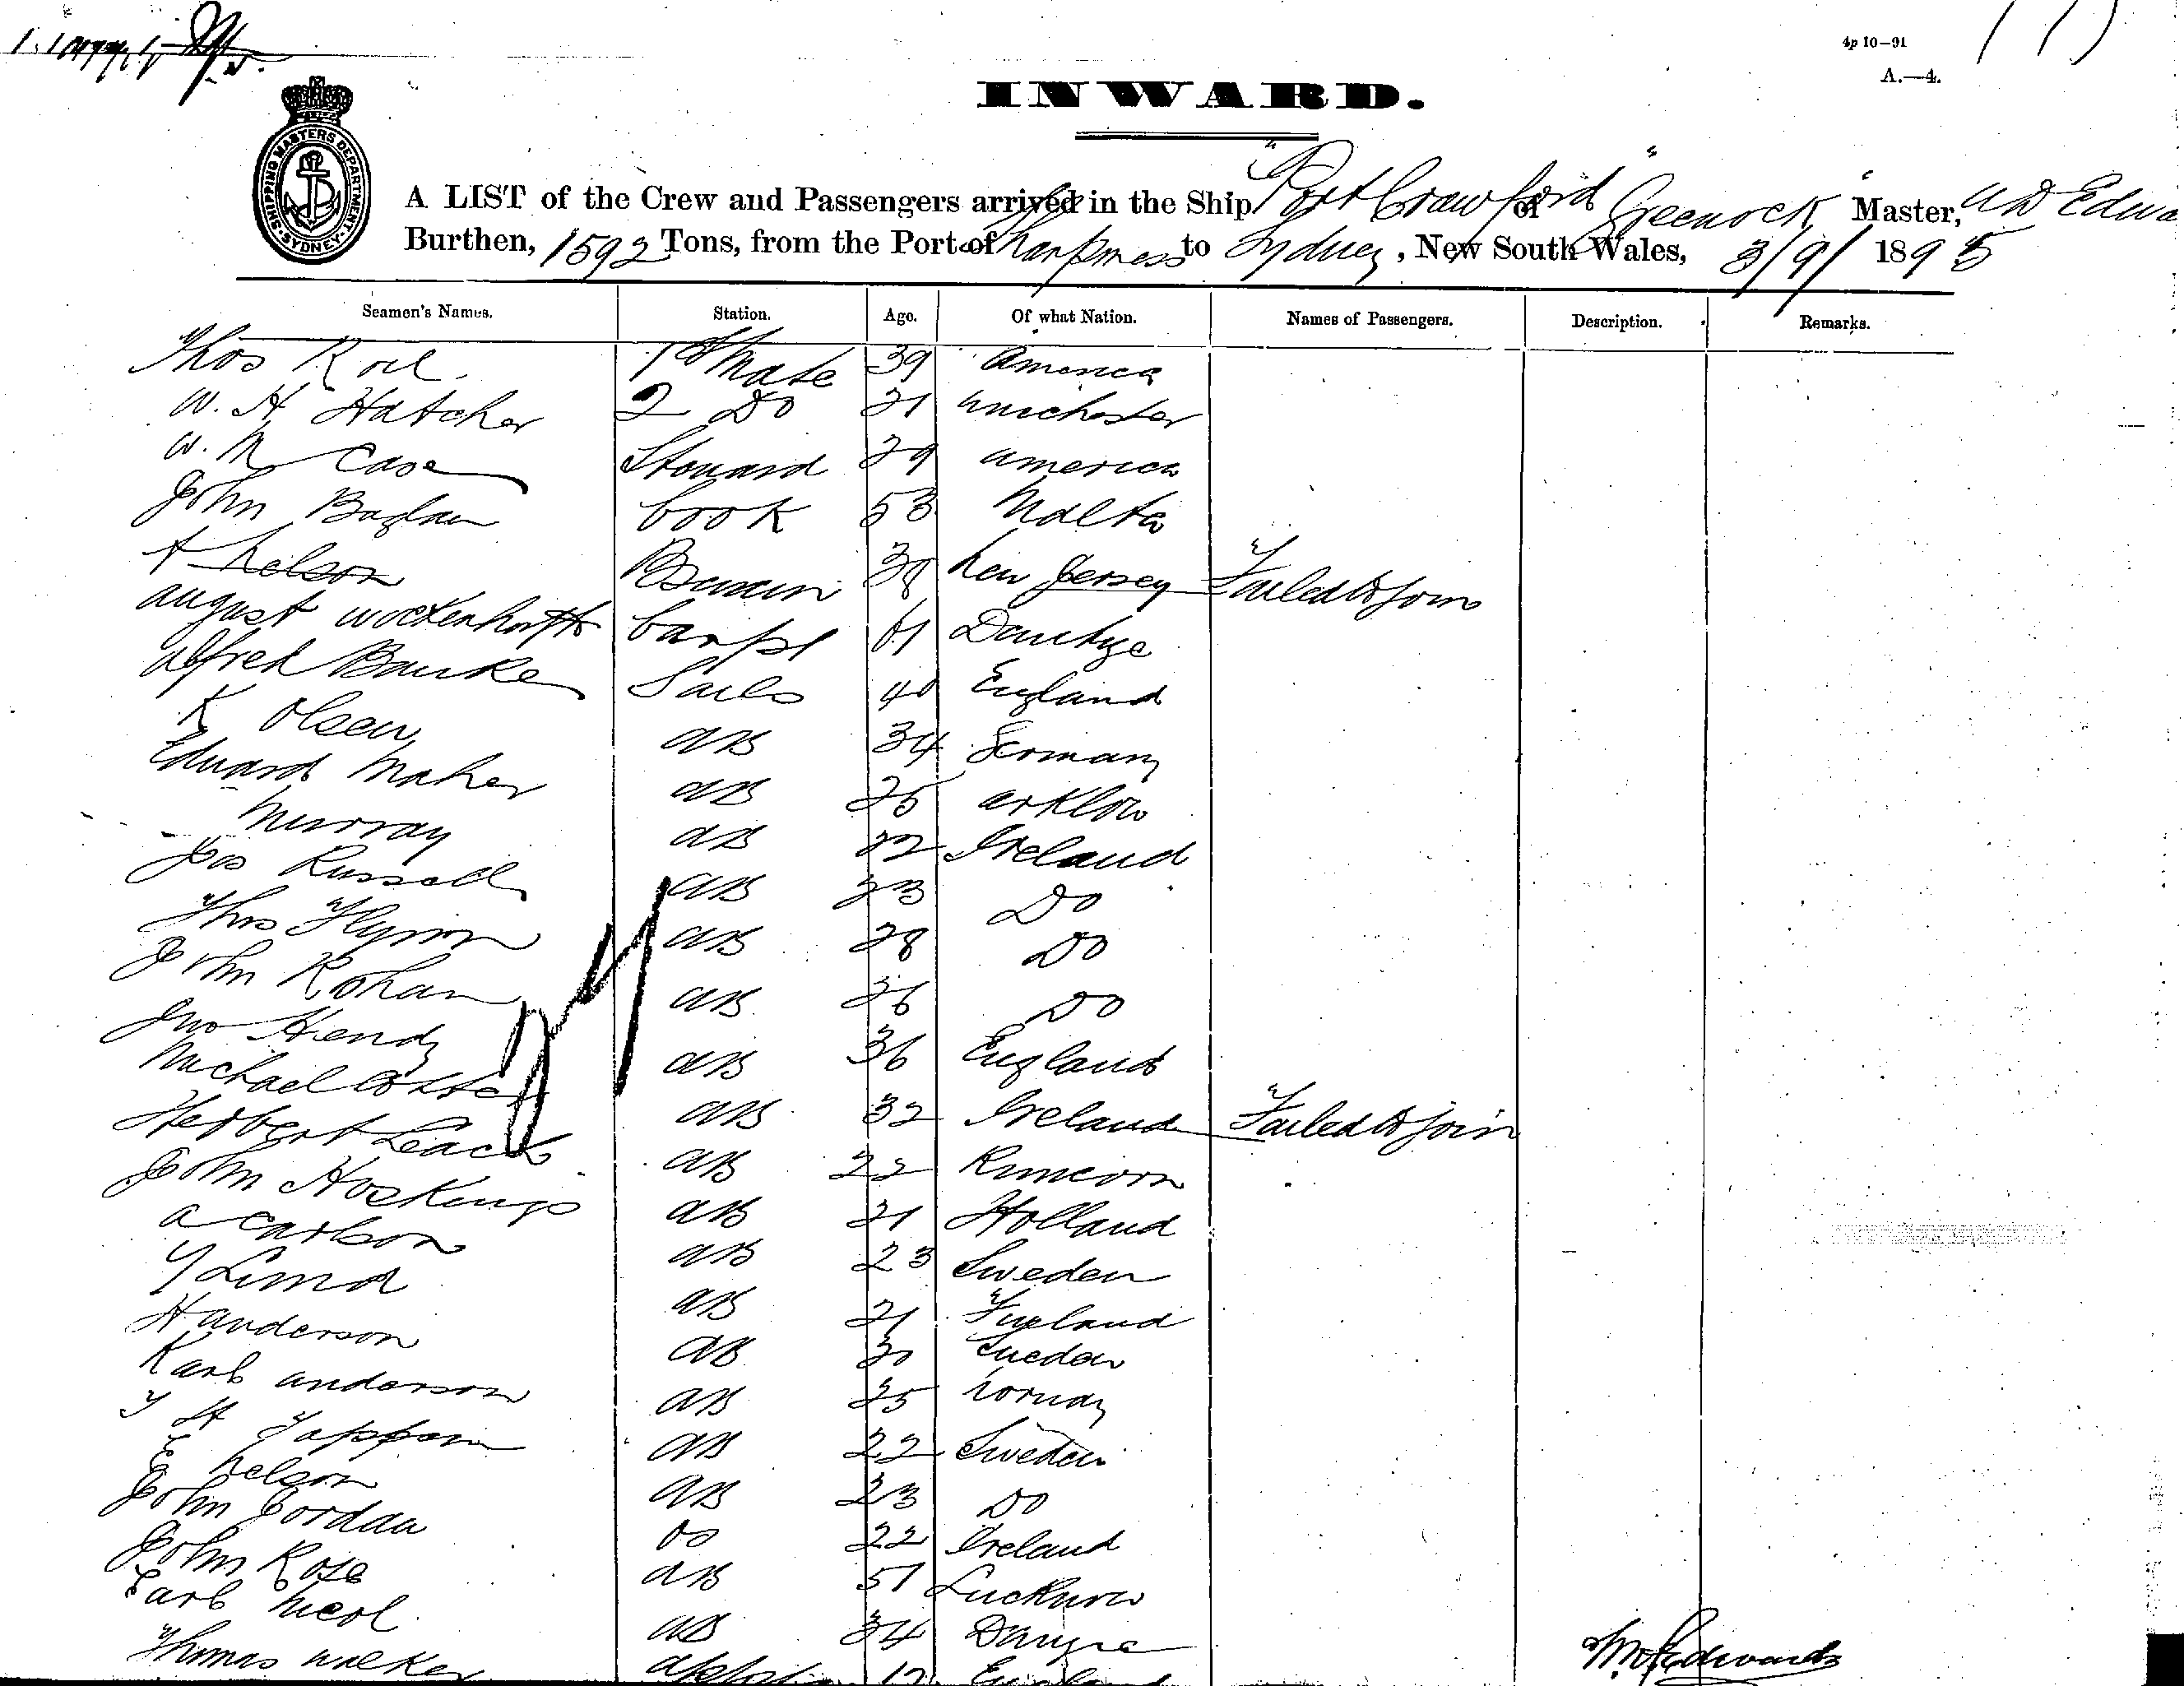 4p 10—91
A.—4.
INWARD.
SHIPPING MASTERS DEPARTMENT SYDNEY
A LIST of the Crew and Passengers arrived in the Ship "Port Crawford" of Greenock Master, W D Edwa
Burthen, 1592 Tons, from the Port of Sharpness to Sydney, New South Wales, 3/9/ 1895
Seamen's Names. Station. Age. Of what Nation. Names of Passengers. Description. Remarks.
Thos 1st Mate 39 America
W. H Hatcher 2 Do 21 Winchester
W. M Case Steward 29 America
John Cook 53 Malta
A Nelson 38 New Jersey Failed to join
August Carptr 61
Alfred Sails 40 England
K Olsen AB 34 German
Edward Maher AB 25 Arklow
Murray AB 22 Ireland
Jas Russell AB 23 Do
Thos Flynn AB 28 Do
John Rohan AB 26 Do
Jno Hendy AB 36 England
Michael AB 32 Ireland Failed to join
Herbert Leach AB 22 Runcorn
John Hoskings AB 21 Holland
A Carlson AB 23 Sweden
AB 21
H Anderson AB 30 Sweden
Karl Anderson AB 25 Norway
AB 22 Sweden
E Nelson AB 23 Do
John Do 22 Ireland
John Rose AB 51 Lucknow
Carl AB 34
Thomas Walker England
Edwards